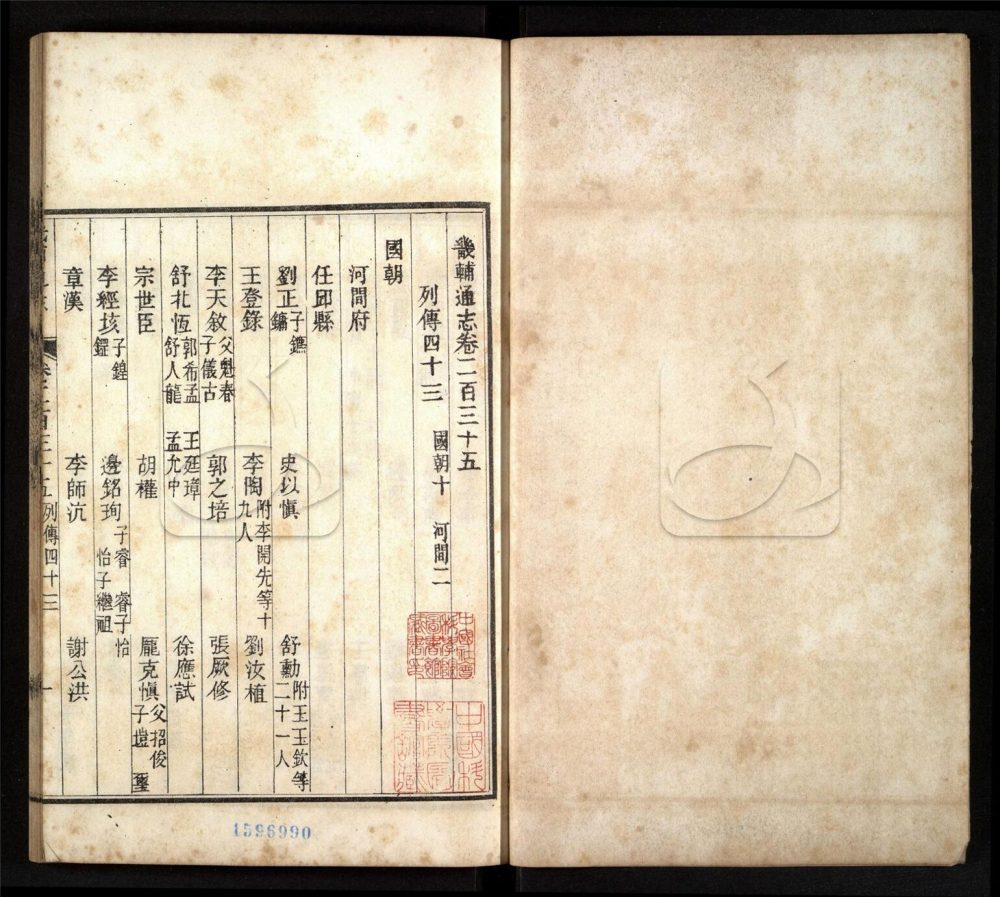 畿輔通志卷二百三十五
列傳四十三 國朝十 河間二
國朝
河間府
任邱縣
劉正 子鑣 鏞 史以慎 舒勳 附王玉欽等二十一人
王登錄 李陶 附李開先等十九人 劉汝植
李天敘 父魁春 子儀古 郭之培 張厥修
舒北恆 郭布孟 舒人龍 王廷璋 孟允中 徐應試
宗世臣 胡權 龐克慎 父招俊 子塏 璽
李經垓 子鍠 鑺 邊銘珣 子睿 睿子怡 怡子繼祖
章漢 李師沆 謝公洪
列傳四十三
一
1596990